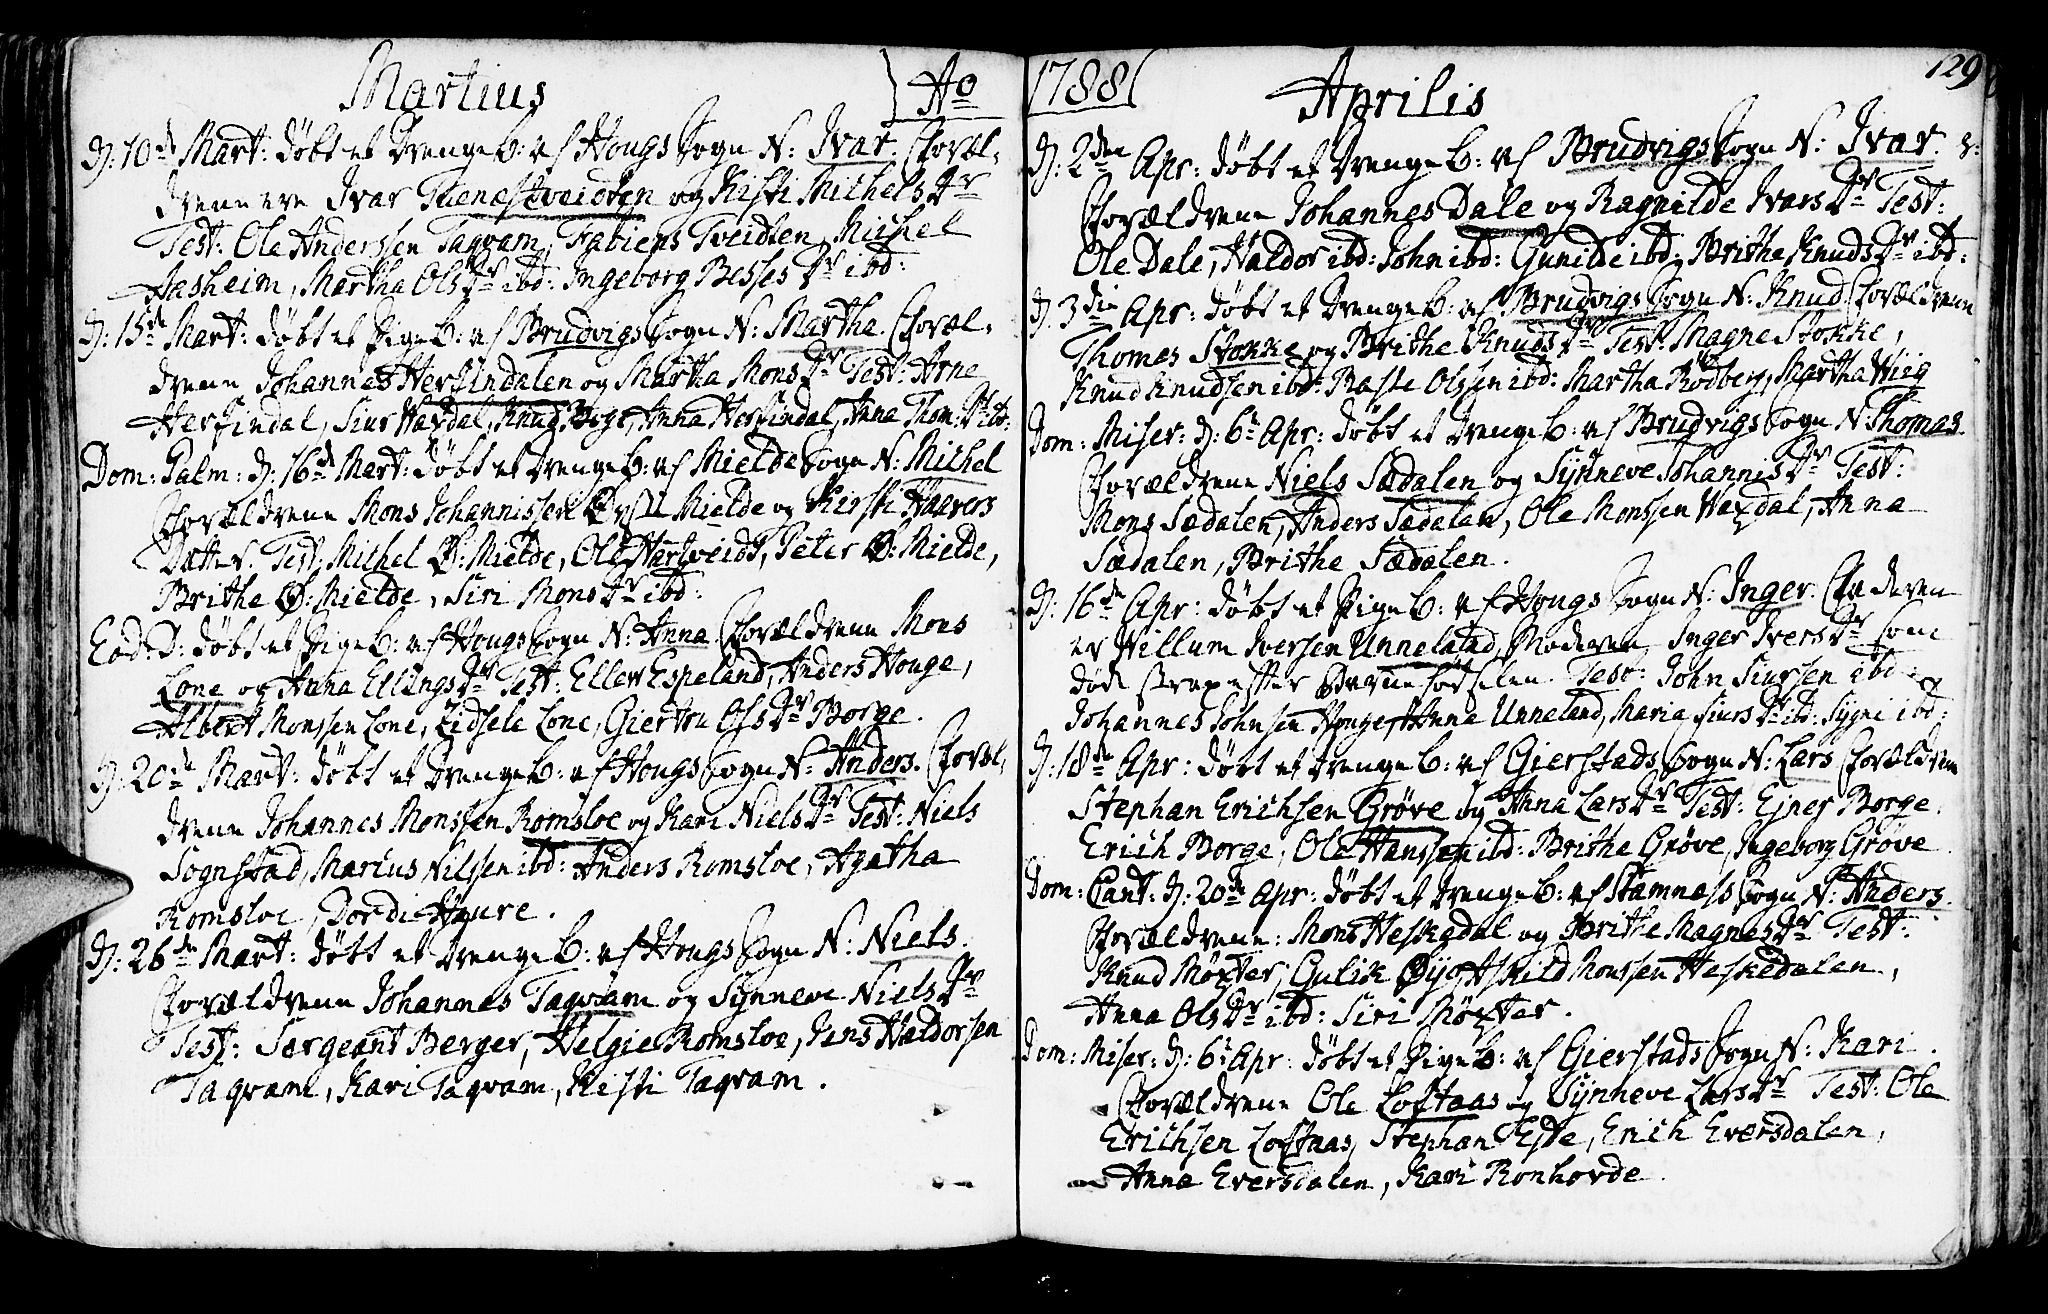 Martius Ao
D: 10de Mart: døbt et Drengeb: af Hougs Sogn N: Ivar. Foræl-
drene ere Ivar Tuenestveidten og Kisti Michels Dr
Test: Ole Anderssen Taqvam, Fabiens Tveidten, Michel
Aasheim, Martha Ols Dr ibd: Ingeborg Besses Dr ibd:
D: 15de Mart: døbt et Pigeb: af Brudvigs Sogn N: Martha. Foræl-
drene Johannes Herfindalen og Martha Mons Dr Test: Arne
Herfindal, Siur Waxdal, Knud Boge, Anna Herfindal, Anna Thom: Dr ib:
Dom: Palm: D: 16de Mart: døbt et Drengeb: af Mielde Sogn N: Michel
Forældrene Mons Johannissen Øvst: Mielde og Kirsti Haavers
Datter. Test: Michel Ø: Mielde, Ole Hartveidt, Peter Ø: Mielde,
Brithe Ø: Mielde, Siri Mons Dr ibd:
Eod: D: døbt et Pigeb: af Hougs Sogn N: Anna Forældrene Mons
Lone og Anna Ellings Dr Test: Ellew Espeland, Anders Houge,
Albert Monssen Lone, Zidsele Lone, Giertru Ols Dr Borge.
D: 20de Mart: døbt et Drengeb: af Hougs Sogn N: Anders. Foræl-
drene Johannes Monssen Romsloe og Kari Niels Dr Test: Niels
Sognstad, Marius Nilssen ibd: Anders Romsloe, Agatha
Romsloe, Dordi Houre.
D: 26de Mart: døbt et Drengeb: af Hougs Sogn N: Niels.
Forældrene Johannes Taqvam og Synneve Niels Dr
Test: Sergeant Berger, Helgie Romsloe, Jens Haldorsen
Taqvam, Kari Taqvam, Kisti Taqvam.
1788 Aprilis 129
D: 2den Apr: døbt et Drengeb: af Brudvigs Sogn N: Ivar.
Forældrene Johannes Dale og Ragnilde Ivars Dr Test:
Ole Dale, Haldor ibd: John ibd: Gunilde ibd: Brithe Knuds Dr ibd:
D: 3die Apr: døbt et Drengeb: af Brudvigs Sogn N: Knud. Forældrene
Thomas Stokke og Brithe Knuds Dr Test: Magne Stokke,
Knud Knudsen ibd: Baste Olssen ibd: Martha Rødberg, Martha Wiig
Dom: Miser: D: 6te Apr: døbt et Drengeb: af Brudvigs Sogn N: Thomas.
Forældrene Niels Sædalen og Synneve Johannis Dr Test:
Mons Sædalen, Anders Sædalen, Ole Monssen Waxdal, Anna
Sædalen, Brithe Sædalen.
D: 16de Apr: døbt et Pigeb: af Hougs Sogn N: Inger. Faderen
er Willum Iversen Unneland, Moderen, Inger Ivers Dr som
døde strax efter Barnefødselen. Test: John Siursen ibd:
Johannes Johnsen Houge, Anna Unneland, Maria Siurs Dr ibd: Sygni ibd:
D: 18de Apr: døbt et Drengeb: af Gierstads Sogn N: Lars Forældrene
Stephan Erichsen Grøve og Anna Lars Dr Test: Ejner Borge.
Erich Borge, Ole Hanssen ibd: Brithe Grøve, Ingeborg Grøve
Dom: Cant: D: 20de Apr: døbt et Drengeb: af Stamness Sogn N: Anders.
Forældrene: Mons Heskedal og Brithe Magnes Dr Test:
Knud Møxter, Gulik Øyo, Askild Monssen Heskedalen,
Anna Ols Dr ibd: Siri Møxter.
Dom: Miser: D: 6te Apr: døbt et Pigeb: af Gierstads Sogn N: Kari.
Forældrene Ole Loftaas og Synneve Lars Dr Test: Ole
Erichsen Loftaas, Stephan Tyste, Erich Eversdalen,
Anna Eversdalen, Kari Ronhovde.